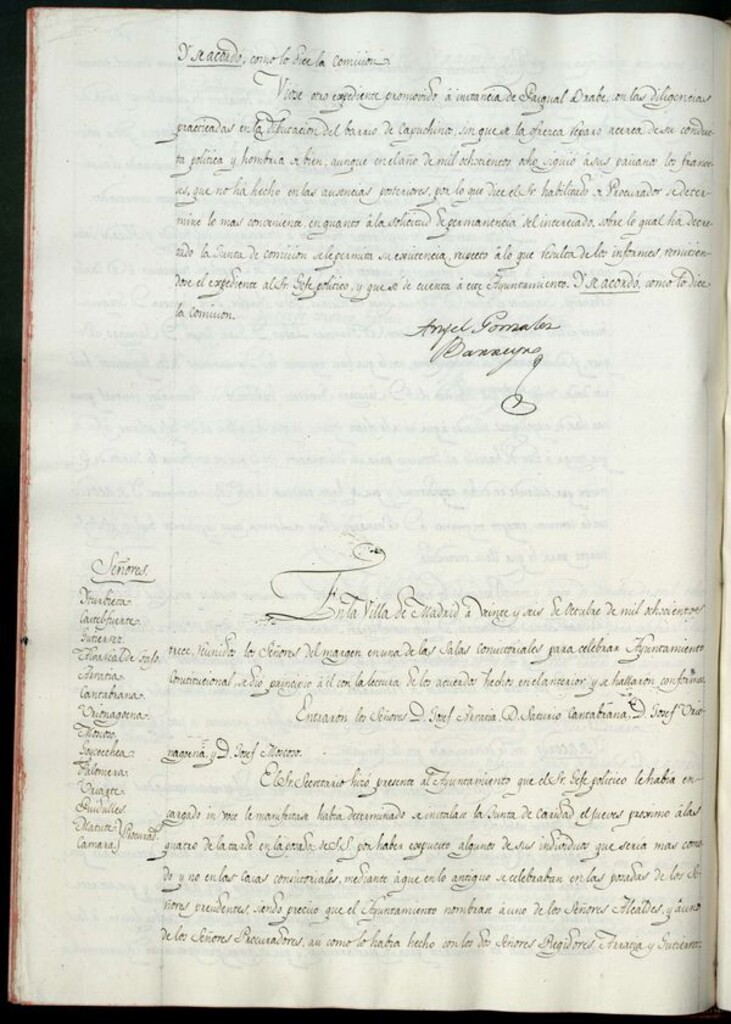 Y se acordó, como lo dice la comision.
Viose otro expediente promovido á instancia de Pasqual Drabe, con las diligencias
practicadas en la Diputacion del barrio de Capuchinos, sin que se la ofrezca reparo acerca de su conduc-
ta politica y hombria de bien, aunque en el año de mil ochocientos ocho siguió á sus paisanos los france-
ses, que no há hecho en las ausencias posteriores, por lo que dice el Sr. habilitado de Procurador se deter-
mine lo mas conveniente, en quanto á la solicitud de permanencia del interesado, sobre lo qual há decre-
tado la Junta de comision se le permita su existencia, respecto á lo que resulta de los informes, remitien-
dose el expediente al Sr. Gefe politico, y que se dé cuenta á este Ayuntamiento. Y se acordó, como lo dice
la comision.
Angel Gonzalez
Barreyro
Señores.
Yturbieta.
Castelfuerte.
Gutierrez.
Arratia.
Cantabrana.
Urionagoena.
Moscoso.
Goycoechea.
Palomera.
Uriarte.
Matute
Camara
Procurad.
En la Villa de Madrid á veinte y seis de Octubre de mil ochocientos
trece, reunidos los Señores del margen en una de las Salas consistoriales para celebrar Ayuntamiento
Constitucional, se dió principio á él con la lectura de los acuerdos hechos en el anterior, y se hallaron conformes.
Entraron los Señores D. Josef Arratia, D. Saturio Cantabrana, D. Josef Urio-
nagoena, y D. Josef Moscoso.
El Sr. Secretario hizo presente al Ayuntamiento que el Sr. Gefe politico le habia en-
cargado in voce le manifestase habia determinado se instalase la Junta de Caridad el jueves proximo á las
quatro de la tarde en la posada de S.S. por haber expuesto algunos de sus individuos que seria mas como-
do y no en las Casas consistoriales, mediante á que en lo antiguo se celebraban en las posadas de los Se-
ñores presidentes, siendo preciso que el Ayuntamiento nombrase á uno de los Señores Alcaldes, y á uno
de los Señores Procuradores, asi como lo habia hecho con los dos Señores Regidores, Arratia y Gutierrez: